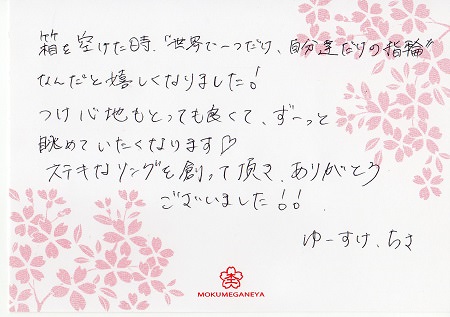 箱を空けた時、“世界で一つだけ、自分達だけの指輪”
なんだと嬉しくなりました!
つけ心地もとっても良くて、ずーっと
眺めていたくなります♡
ステキなリングを創って頂き、ありがとう
ございました!!
ゆーすけ、ちさ
MOKUMEGANEYA